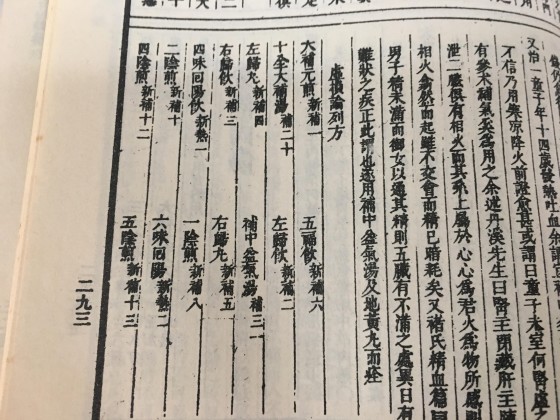 又治一童子年十四歲發熱吐血
不信乃用寒涼降火前證愈甚或謂曰童子未室何腎虛
有參朮補氣奚為用之余述丹溪先生曰腎主閉藏肝主
泄二臟俱有相火而其系上屬於心心為君火為物所感
相火翕然而起雖不交會而精已暗耗矣又褚氏精血篇
男子精未滿而御女以通其精則五臟有不滿之處異日有
難狀之疾正此謂也遂用補中益氣湯及地黃丸而痊
虛損論列方
大補元煎 新補一 五福飲 新補六
十全大補湯 補二十 左歸飲 新補二
左歸丸 新補四 補中益氣湯 補三一
右歸飲 新補三 右歸丸 新補五
四味回陽飲 新熱一 一陰煎 新補八
二陰煎 新補十 六味回陽 新熱二
四陰煎 新補十二 五陰煎 新補十三
二九三